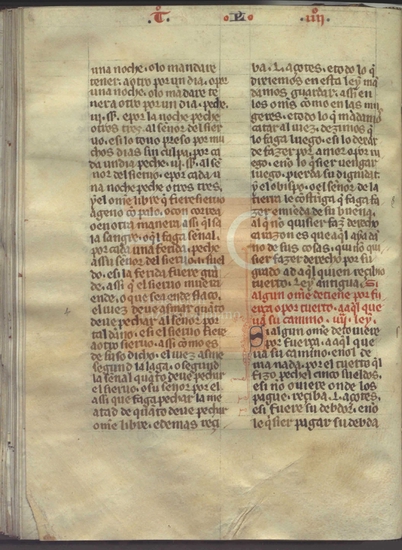 T. P. iiij
una noche. o lo mandare
tener a otro por un dia. o por
una noche. o lo mandare te
ner a otro por un dia. peche.
iij. ss. e por la noche peche
otros tres. al señor del sier
vo. e si lo tono preso por mu
chos dias sin culpa. por ca
da un dia peche. iij. ss. al se
ñor del siervo. e por cada u
na noche peche otros tres.
y el ome libre q fiere siervo
ageno co palo. o con correa
o en otra manera assi q isca
la sangre. o ql faga señal.
por cada una ferida. peche
assu señor del siervo. i. suel
do. e si la ferida fuere gra
de. assi q el siervo muera
ende. o que sea ende flaco.
el iuez deve asmar quato
deve pechar al señor. por
tal daño. e si el siervo fiere
a otro siervo. assi como es
de suso dicho. el iuez asme
segund la laga. o segund
la señal quato deve pechar
el siervo. o su señor. por el
assi que faga pechar la me
atad de quato deve pechar
ome libre. e demas reci
ba. L. açotes. e todo lo q
diziemos en esta ley ma
damos guardar. assi en
los omes. como en las mu
geres. e todo lo q madamos
catar al iuez. dezimos q
lo faga luego. e si lo dexar
de fazer por amor o por ru
ego. e no lo qsier vengar
luego. pierda su dignidat
y el obispo. o el señor de la
tierra le costriga q faga fa
zer emieda de su buena.
e si no quisier faz derecho
razon es que aql aya da
ño de sus cosas. qui no qui
sier fazer derecho por su
grado ad aql quien recibio
tuerto. Ley antigua. Si
algun ome detiene por fu
erça o por tuerto. a aql que
va su camino. iiij. ley.
Si algun ome detoviere
por fuerça. a aql que
va su camino. e no l de
ma nada. por el tuerto ql
fizo peche l cinco sueldos.
e si no oviere onde los
pague. reciba. L. açotes.
e si fuere su debdor. e no
le qsier pagar su debda